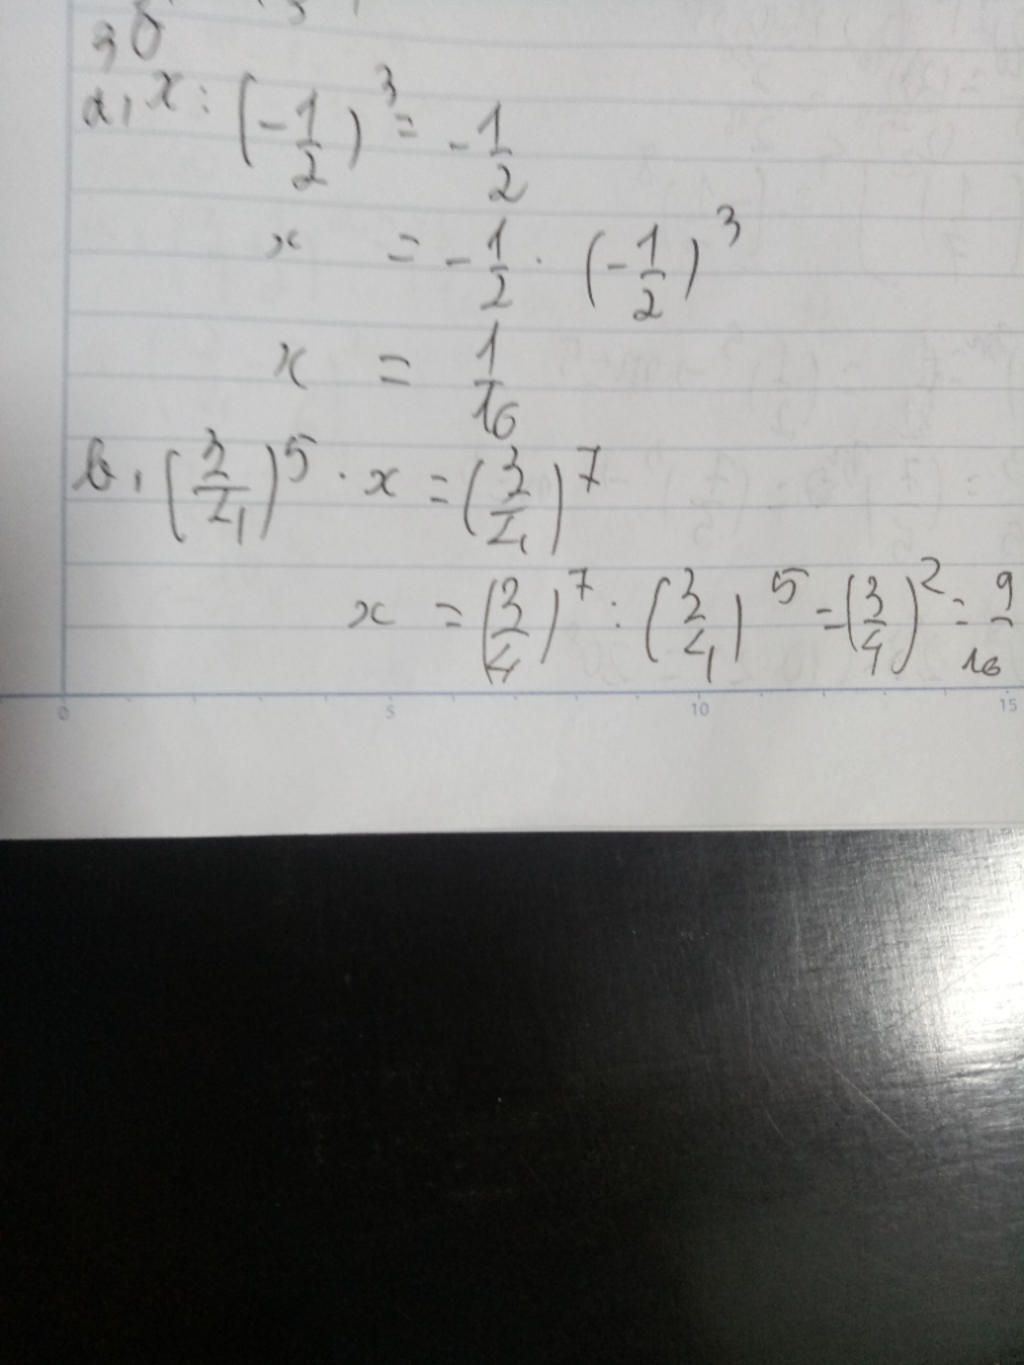 30
a, x : (-1/2)^3 = -1/2
x = -1/2 · (-1/2)^3
x = 1/16
b, (3/4)^5 · x = (3/4)^7
x = (3/4)^7 : (3/4)^5 = (3/4)^2 = 9/16
0 5 10 15